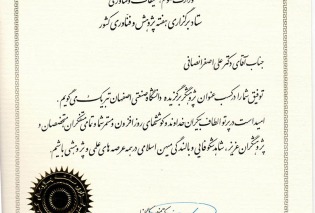 وزارت علوم، تحقیقات و فناوری
ستاد برگزاری هفته پژوهش و فناوری کشور
جناب آقای دکتر علی اصغر انصافی
توفیق شما را در کسب عنوان پژوهشگر برگزیده دانشگاه صنعتی اصفهان تبریک می گویم.
امید است در پرتو الطاف بیکران خداوند و کوششهای روزافزون و مستمر شما و تمامی متفکران، متخصصان و
پژوهشگران عزیز، شاهد شکوفایی و بالندگی میهن اسلامی در همه عرصه های علمی و پژوهشی باشیم.